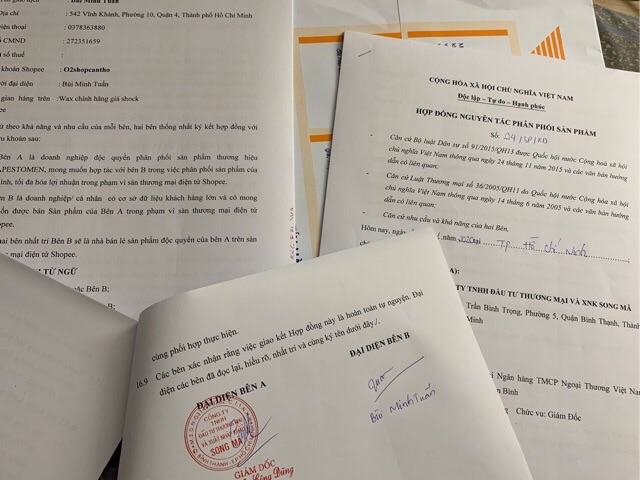 Bùi Minh Tuấn
: 542 Vĩnh Khánh, Phường 10, Quận 4, Thành phố Hồ Chí Minh
: 0378363880
CMND : 272351659
thuế :
khoản Shopee : O2shopcantho
đại diện : Bùi Minh Tuấn
gian hàng trên : Wax chính hãng giá shock
theo khả năng và nhu cầu của mỗi bên, hai bên thống nhất ký kết hợp đồng với
khoản sau:
Bên A là doanh nghiệp độc quyền phân phối sản phẩm thương hiệu
APESTOMEN, mong muốn hợp tác với bên B trong việc phân phối sản phẩm của
mình, tối đa hóa lợi nhuận trong phạm vi sàn thương mại điện tử Shopee.
B là doanh nghiệp/ cá nhân có cơ sở dữ liệu khách hàng lớn và có mong
được bán Sản phẩm của Bên A trong phạm vi sàn thương mại điện tử
Shopee.
hai bên nhất trí Bên B sẽ là nhà bán lẻ sản phẩm độc quyền của bên A trên sàn
mại điện tử Shopee.
TỪ NGỮ
các Bên B;
CỘNG HÒA XÃ HỘI CHỦ NGHĨA VIỆT NAM
Độc lập – Tự do – Hạnh phúc
HỢP ĐỒNG NGUYÊN TẮC PHÂN PHỐI SẢN PHẨM
Số: 24/SP/KD
- Căn cứ Bộ luật Dân sự số 91/2015/QH13 được Quốc hội nước Cộng hoà xã hội
chủ nghĩa Việt Nam thông qua ngày 24 tháng 11 năm 2015 và các văn bản hướng
dẫn có liên quan;
- Căn cứ Luật Thương mại số 36/2005/QH11 do Quốc hội nước Cộng hòa xã hội
chủ nghĩa Việt Nam thông qua ngày 14 tháng 6 năm 2005 và các văn bản hướng
dẫn có liên quan;
- Căn cứ nhu cầu và khả năng của hai Bên.
Hôm nay, ngày năm 2020 tại TP Hồ Chí Minh
A):
TY TNHH ĐẦU TƯ THƯƠNG MẠI VÀ XNK SONG MÃ
Trần Bình Trọng, Phường 5, Quận Bình Thạnh, Thành
Minh
Ngân hàng TMCP Ngoại Thương Việt Nam
Bình
Chức vụ: Giám Đốc
cùng phối hợp thực hiện.
16.9 Các bên xác nhận rằng việc giao kết Hợp đồng này là hoàn toàn tự nguyện. Đại
diện các bên đã đọc lại, hiểu rõ, nhất trí và cùng ký tên dưới đây./.
ĐẠI DIỆN BÊN A ĐẠI DIỆN BÊN B
CÔNG TY
TNHH
ĐẦU TƯ THƯƠNG MẠI
VÀ XUẤT NHẬP KHẨU
SONG MÃ
Bùi Minh Tuấn
GIÁM ĐỐC
Dũng